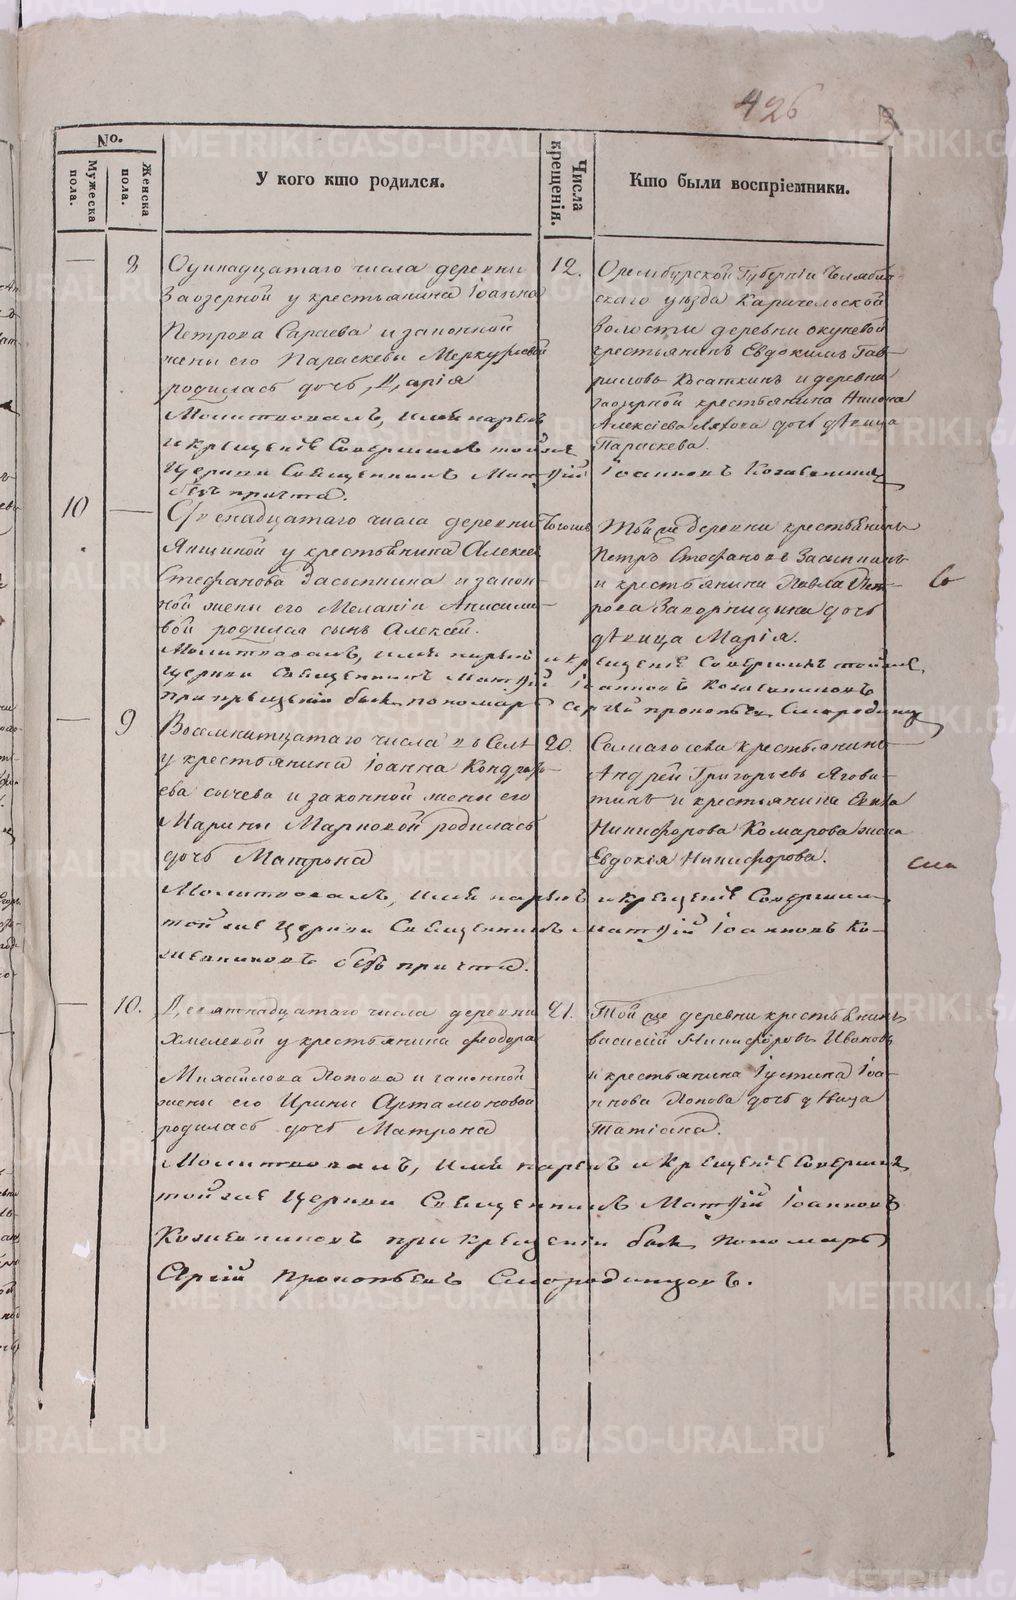 426
No.
Мужеска пола.
Женска пола.
У кого кто родился.
Числа крещенія.
Кто были воспріемники.
8
Одинадцатаго числа деревни
Заозерной у крестьянина Іоанна
Петрова Сараева и законной
жены его Параскевы Меркурьевой
родилась дочь Дарія
Молитвовалъ, имя нарекъ
и крещеніе совершилъ тойже
Церкви Священникъ Матѳій Іоанновъ Кожевниковъ
безъ причта.
12.
Оренбургской Губерніи Челябин-
скаго уѣзда Каричельской
волости деревни окуневой
крестьянинъ Евдокимъ Гав-
риловъ Косаткинъ и деревни
заозерной крестьянина
Алексіева дочь дѣвица
Параскева.
10
числа деревни
Янциной у крестьянина Алексея
Стефанова Засыпкина и закон-
ной жены его Меланіи Аниси​мо-
вой родился сынъ Алексій.
Молитвовалъ, имя нарекъ и крещеніе совершилъ тойже
Церкви Священникъ Матѳій Іоанновъ Кожевниковъ
при крещеніи былъ пономарь Сергій Прокопьевъ Смородинцовъ
Тойже деревни крестьянинъ
Петръ Стефановъ Засыпкинъ
и крестьянина Павла Пет-
рова дочь
дѣвица Марія.
9
Восемнатцатаго числа въ Селѣ
у крестьянина Іоанна Кондрать-
ева Сычева и законной жены его
Марины Марковой родилась
дочь Матрона
Молитвовалъ, имя нарекъ и крещеніе совершилъ
тойже Церкви Священникъ Матѳій Іоанновъ Ко-
жевниковъ безъ причта.
20.
Самаго села крестьянинъ
Андрей Григорьевъ
и крестьянина
Никифорова Комарова жена
Евдокія Никифорова.
10.
Девятнадцатаго числа деревни
Хмелевой у крестьянина Ѳеодора
Михайлова Попова и законной
жены его Ирины Артамоновой
родилась дочь Матрона
Молитвовалъ, имя нарекъ и крещеніе совершилъ
тойже Церкви Священникъ Матѳій Іоанновъ
Кожевниковъ при крещеніи былъ пономарь
Сергій Прокопьевъ Смородинцовъ.
21.
Той же деревни крестьянинъ
василій Никифоровъ Ивановъ
и крестьянина Іустина Іоа-
ннова Попова дочь дѣвица
Татіана.